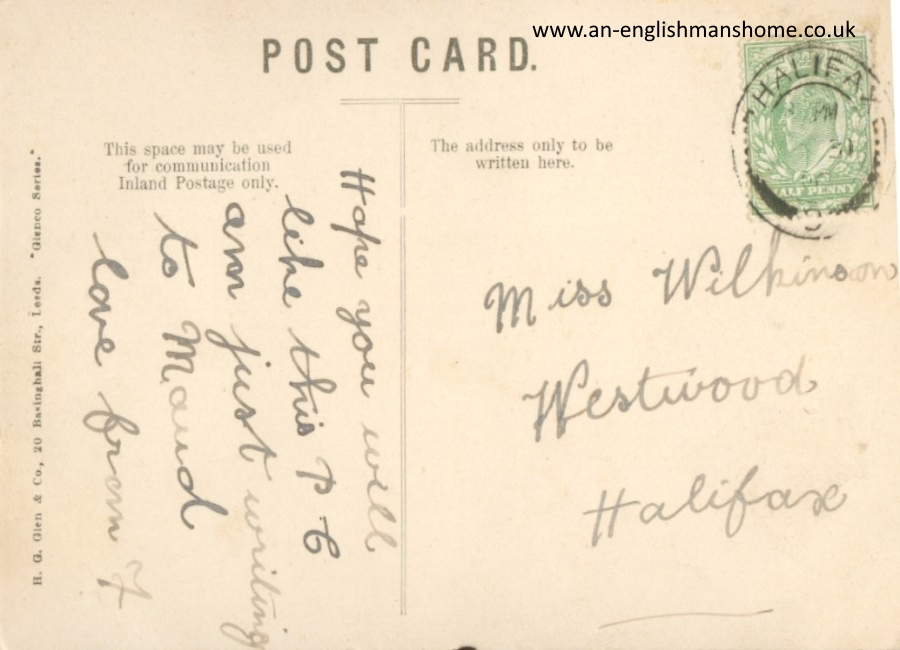 www.an-englishmanshome.co.uk
POST CARD.
This space may be used
for communication
Inland Postage only.
The address only to be
written here.
HALIFAX
PM
HALF PENNY
Hope you will
like this P C
am just writing
to Maud
love from
Miss Wilkinson
Westwood
Halifax
H. G. Glen & Co., 20 Basinghall Str., Leeds. "Glenco Series."